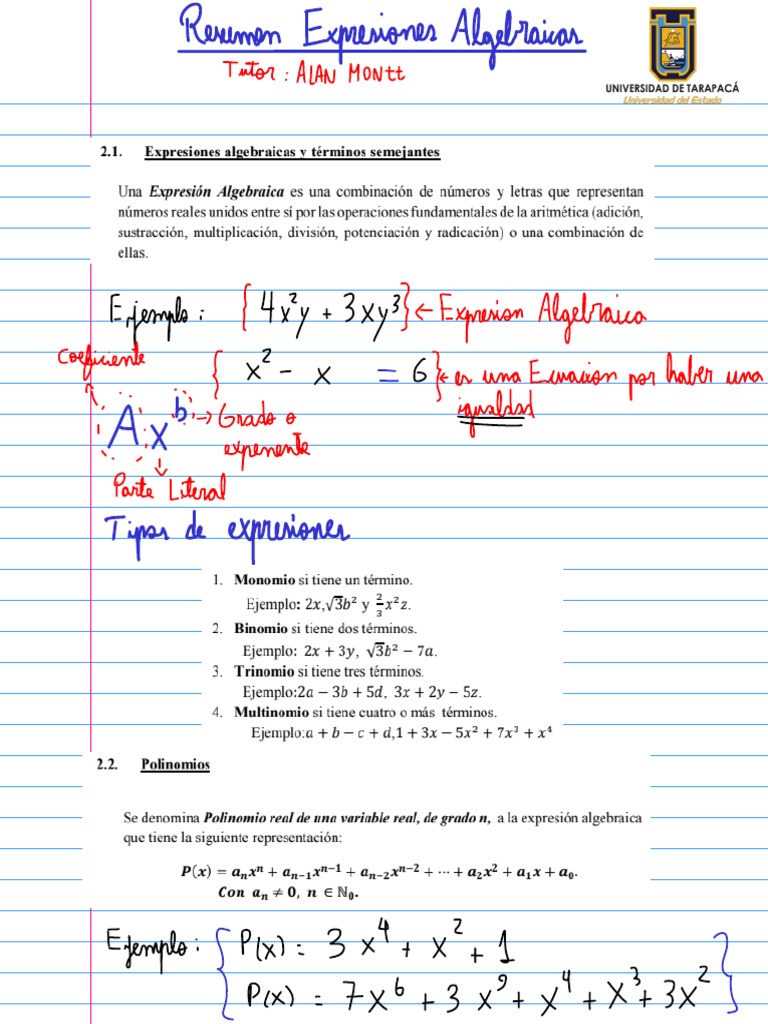 Resumen Expresiones Algebraicas
Tutor: ALAN MOntt
UNIVERSIDAD DE TARAPACÁ
Universidad del Estado
2.1. Expresiones algebraicas y términos semejantes
Una Expresión Algebraica es una combinación de números y letras que representan
números reales unidos entre sí por las operaciones fundamentales de la aritmética (adición,
sustracción, multiplicación, división, potenciación y radicación) o una combinación de
ellas.
Ejemplo: {4x²y + 3xy³} ← Expresion Algebraica
Coeficiente
{x² - x = 6} ← es una Ecuacion por haber una
igualdad
Ax^b → Grado o
exponente
Parte Literal
Tipos de expresiones
1. Monomio si tiene un término.
Ejemplo: 2x,√3b² y 2/3 x²z.
2. Binomio si tiene dos términos.
Ejemplo: 2x + 3y, √3b² − 7a.
3. Trinomio si tiene tres términos.
Ejemplo:2a − 3b + 5d, 3x + 2y − 5z.
4. Multinomio si tiene cuatro o más términos.
Ejemplo:a + b − c + d,1 + 3x − 5x² + 7x³ + x⁴
2.2. Polinomios
Se denomina Polinomio real de una variable real, de grado n, a la expresión algebraica
que tiene la siguiente representación:
P(x) = aₙxⁿ + aₙ₋₁xⁿ⁻¹ + aₙ₋₂xⁿ⁻² + ⋯ + a₂x² + a₁x + a₀.
Con aₙ ≠ 0, n ∈ ℕ₀.
Ejemplo: { P(x) = 3x⁴ + x² + 1
P(x) = 7x⁶ + 3x⁹ + x⁴ + x³ + 3x² }